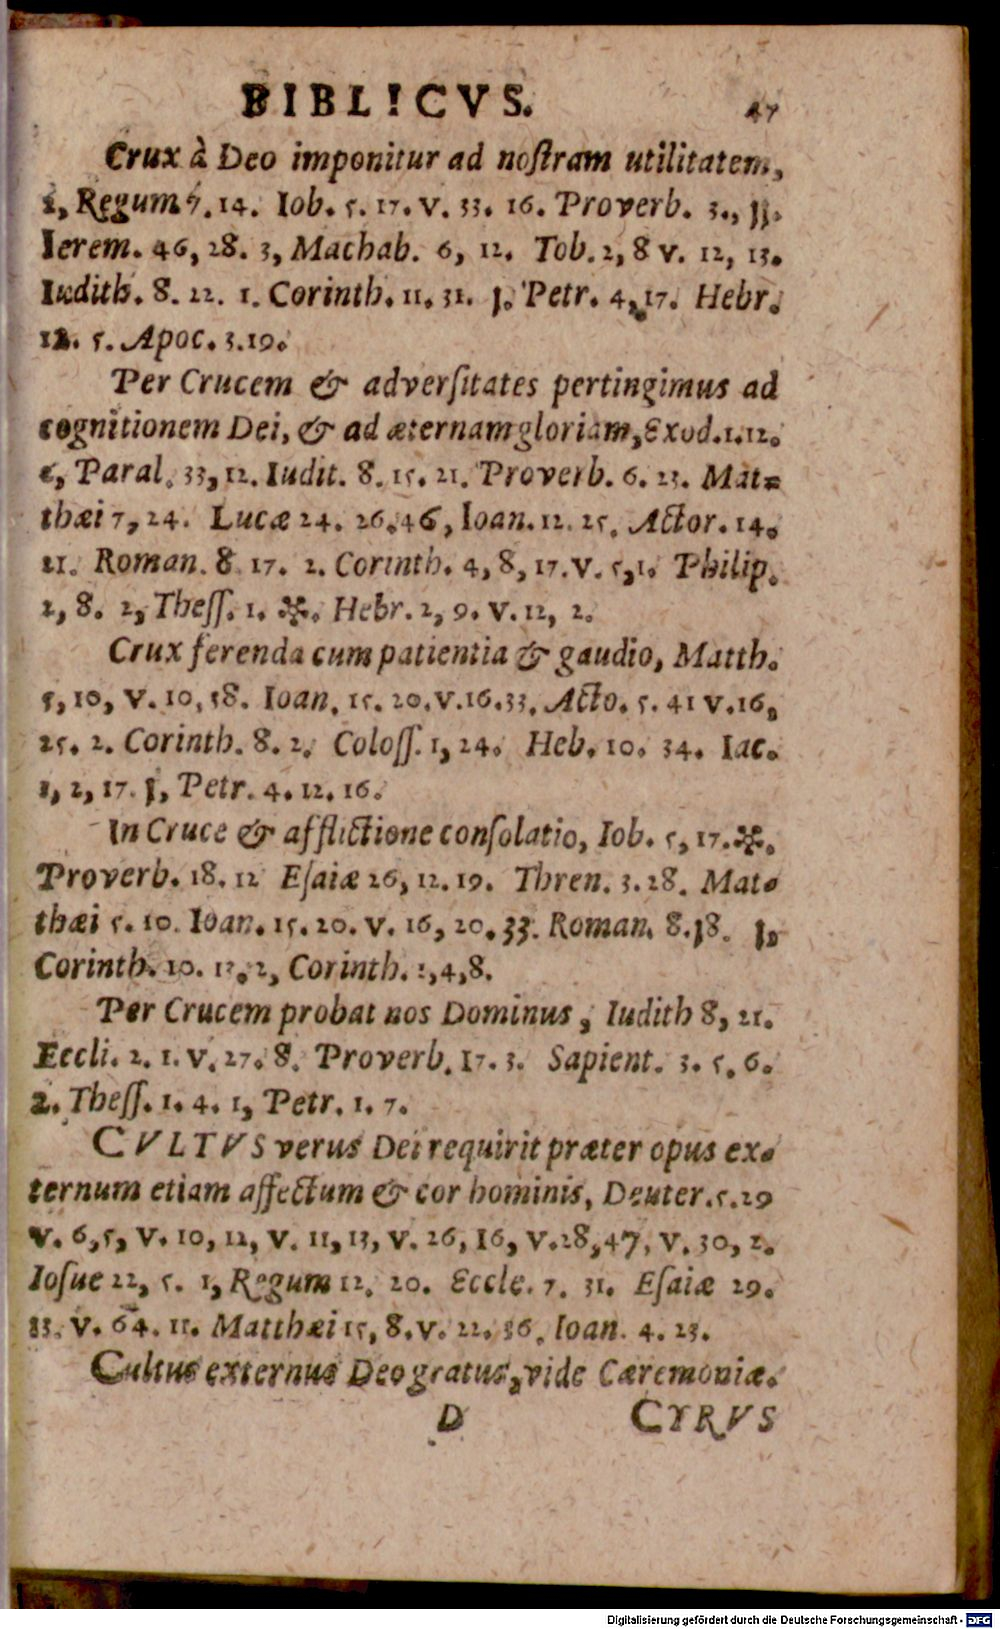 BIBLICVS. 47
Crux à Deo imponitur ad noſtram utilitatem,
2, Regum 7. 14. Iob. 5. 17. v. 33. 16. Proverb. 3., 11.
Ierem. 46, 28. 3, Machab. 6, 12. Tob. 2, 8 v. 12, 13.
Iudith. 8. 22. 1. Corinth. 11. 31. 1. Petr. 4, 17. Hebr.
12. 5. Apoc. 3.19.
Per Crucem & adverſitates pertingimus ad
cognitionem Dei, & ad æternam gloriam, Exod. 1. 12.
Paral. 33, 12. Iudit. 8. 15. 21. Proverb. 6. 23. Mat-
thæi 7, 24. Lucæ 24. 26. 46, Ioan. 12. 25. Actor. 14.
21. Roman. 8 17. 2. Corinth. 4, 8, 17. v. 5, 1. Philip.
2, 8. 2, Theſſ. 1. ✲. Hebr. 2, 9. v. 12, 2.
Crux ferenda cum patientia & gaudio, Matth.
5, 10, v. 10, 38. Ioan. 15. 20. v. 16. 33. Acto. 5. 41 v. 16,
25. 2. Corinth. 8. 2. Coloſſ. 1, 24. Heb. 10. 34. Iac.
1, 2, 17. 1, Petr. 4. 12. 16.
In Cruce & afflictione conſolatio, Iob. 5, 17. ✲.
Proverb. 18. 12 Eſaiæ 26, 12. 19. Thren. 3. 28. Mat-
thæi 5. 10. Ioan. 15. 20. v. 16, 20. 33. Roman. 8. 18. 1,
Corinth. 10. 13. 2, Corinth. 1, 4, 8.
Per Crucem probat nos Dominus, Iudith 8, 21.
Eccli. 2. 1. v. 27. 8. Proverb. 17. 3. Sapient. 3. 5. 6.
2. Theſſ. 1. 4. 1, Petr. 1. 7.
CVLTVS verus Dei requirit præter opus ex-
ternum etiam affectum & cor hominis, Deuter. 5. 29
v. 6, 5, v. 10, 12, v. 11, 13, v. 26, 16, v. 28, 47, v. 30, 2.
Ioſue 22, 5. 1, Regum 12. 20. Eccle. 7. 31. Eſaiæ 29.
13. v. 64. 11. Matthæi 15, 8. v. 22. 36. Ioan. 4. 23.
Cultus externus Deo gratus, vide Cæremoniæ.
D CYRVS
Digitalisierung gefördert durch die Deutsche Forschungsgemeinschaft - DFG